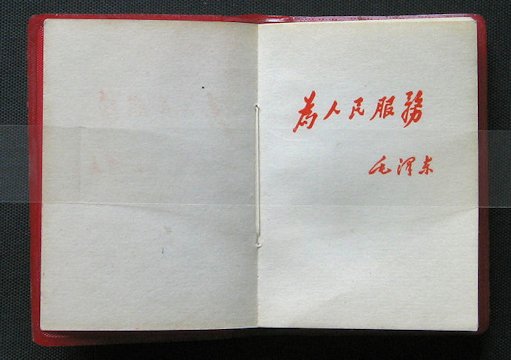 為人民服務
毛泽东